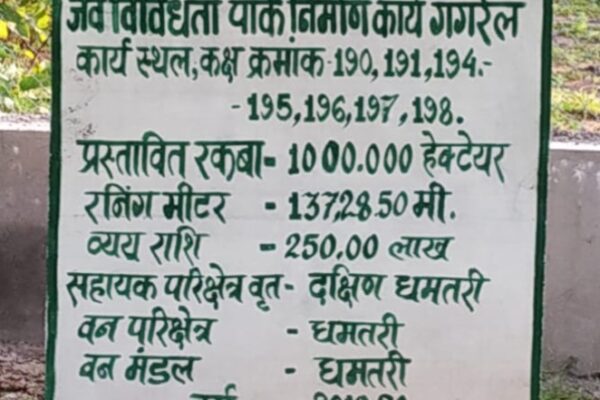 जैव विविधता पार्क निर्माण कार्य गंगरेल
कार्य स्थल, कक्ष क्रमांक-190, 191, 194.-
-195, 196, 197, 198.
प्रस्तावित रकबा- 1000.000 हेक्टेयर
रनिंग मीटर - 13728.50 मी.
व्यय राशि - 250.00 लाख
सहायक परिक्षेत्र वृत- दक्षिण धमतरी
वन परिक्षेत्र - धमतरी
वन मंडल - धमतरी